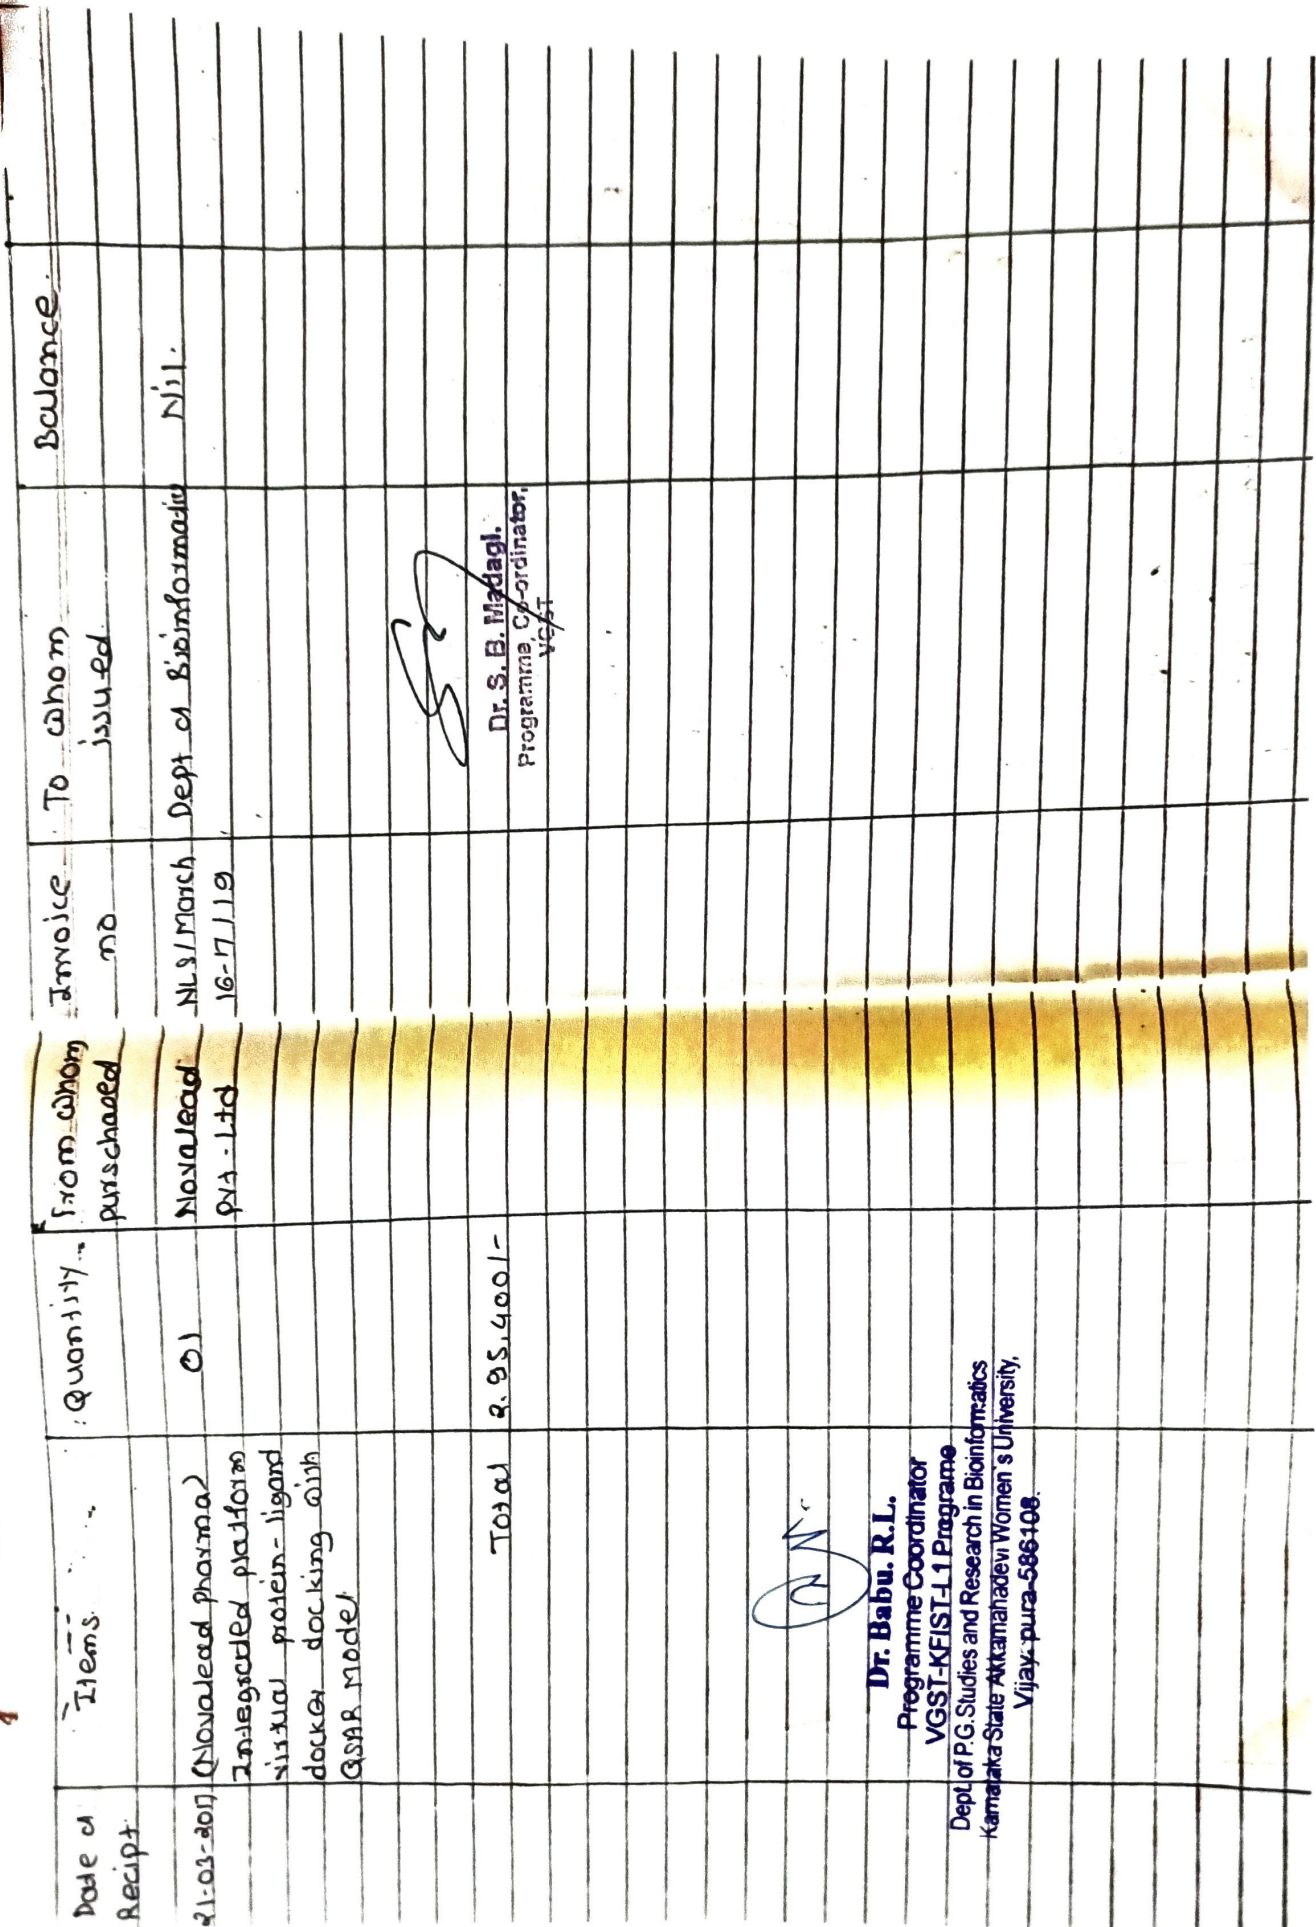 Date of Recipt
Items.
Quantity
From whom purschased
Invoice no
To whom issued
Balance.
21-03-2017
(Novalead pharma)
Integrated platform
virtual protein-ligand
docker docking with
QSAR Model.
01
Novalead
pvt-Ltd
NLS/March
16-17/19
Dept of Bioinformatic
Nil.
Total 2.95.400/-
Dr. S. B. Madagi.
Programme, Co-ordinator,
VGST
Dr. Babu. R.L.
Programme Coordinator
VGST-KFIST-L1 Programe
Dept. of P.G. Studies and Research in Bioinformatics
Karnataka State Akkamahadevi Women's University,
Vijayapura-586108.